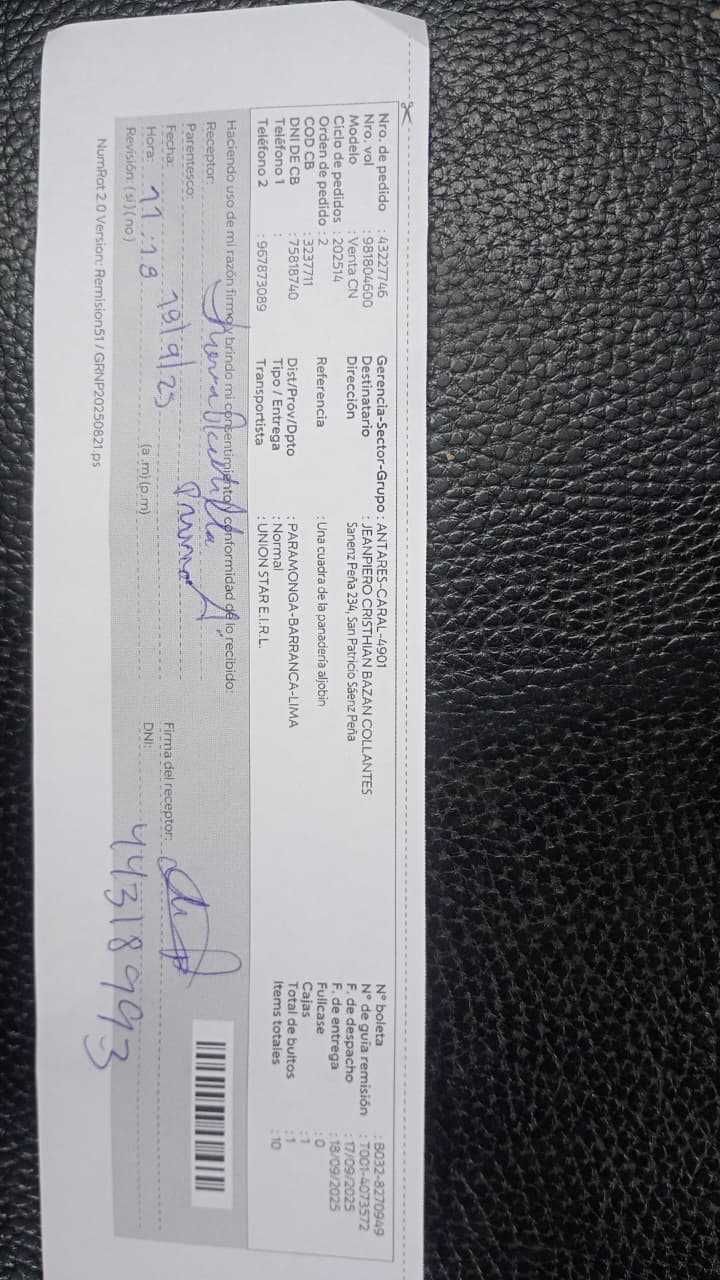 Nro. de pedido : 43227746
Nro. vol : 981804600
Modelo : Venta CN
Ciclo de pedidos : 202514
Orden de pedido : 2
COD CB : 3237711
DNI DE CB : 75818740
Teléfono 1 :
Teléfono 2 : 967873089
Gerencia-Sector-Grupo : ANTARES-CARAL-4901
Destinatario : JEANPIERO CRISTHIAN BAZAN COLLANTES
Dirección Sanenz Peña 234, San Patricio Sáenz Peña
Referencia : Una cuadra de la panadería aljobin
Dist/Prov/Dpto : PARAMONGA-BARRANCA-LIMA
Tipo / Entrega : Normal
Transportista : UNION STAR E.I.R.L.
N° boleta : B032-8270949
N° de guía remisión : T001-4073572
F. de despacho : 17/09/2025
F. de entrega : 18/09/2025
Fullcase : 0
Cajas : 1
Total de bultos : 1
Items totales : 10
Haciendo uso de mi razón firmo y brindo mi consentimiento y conformidad de lo recibido:
Receptor:
Parentesco: Prima
Fecha: 19/9/25
Hora: 11:19 (a.m) (p.m)
Revisión: (si) (no)
Firma del receptor:
DNI: 44318993
NumRot 2.0 Version: Remision51 / GRNP20250821.ps